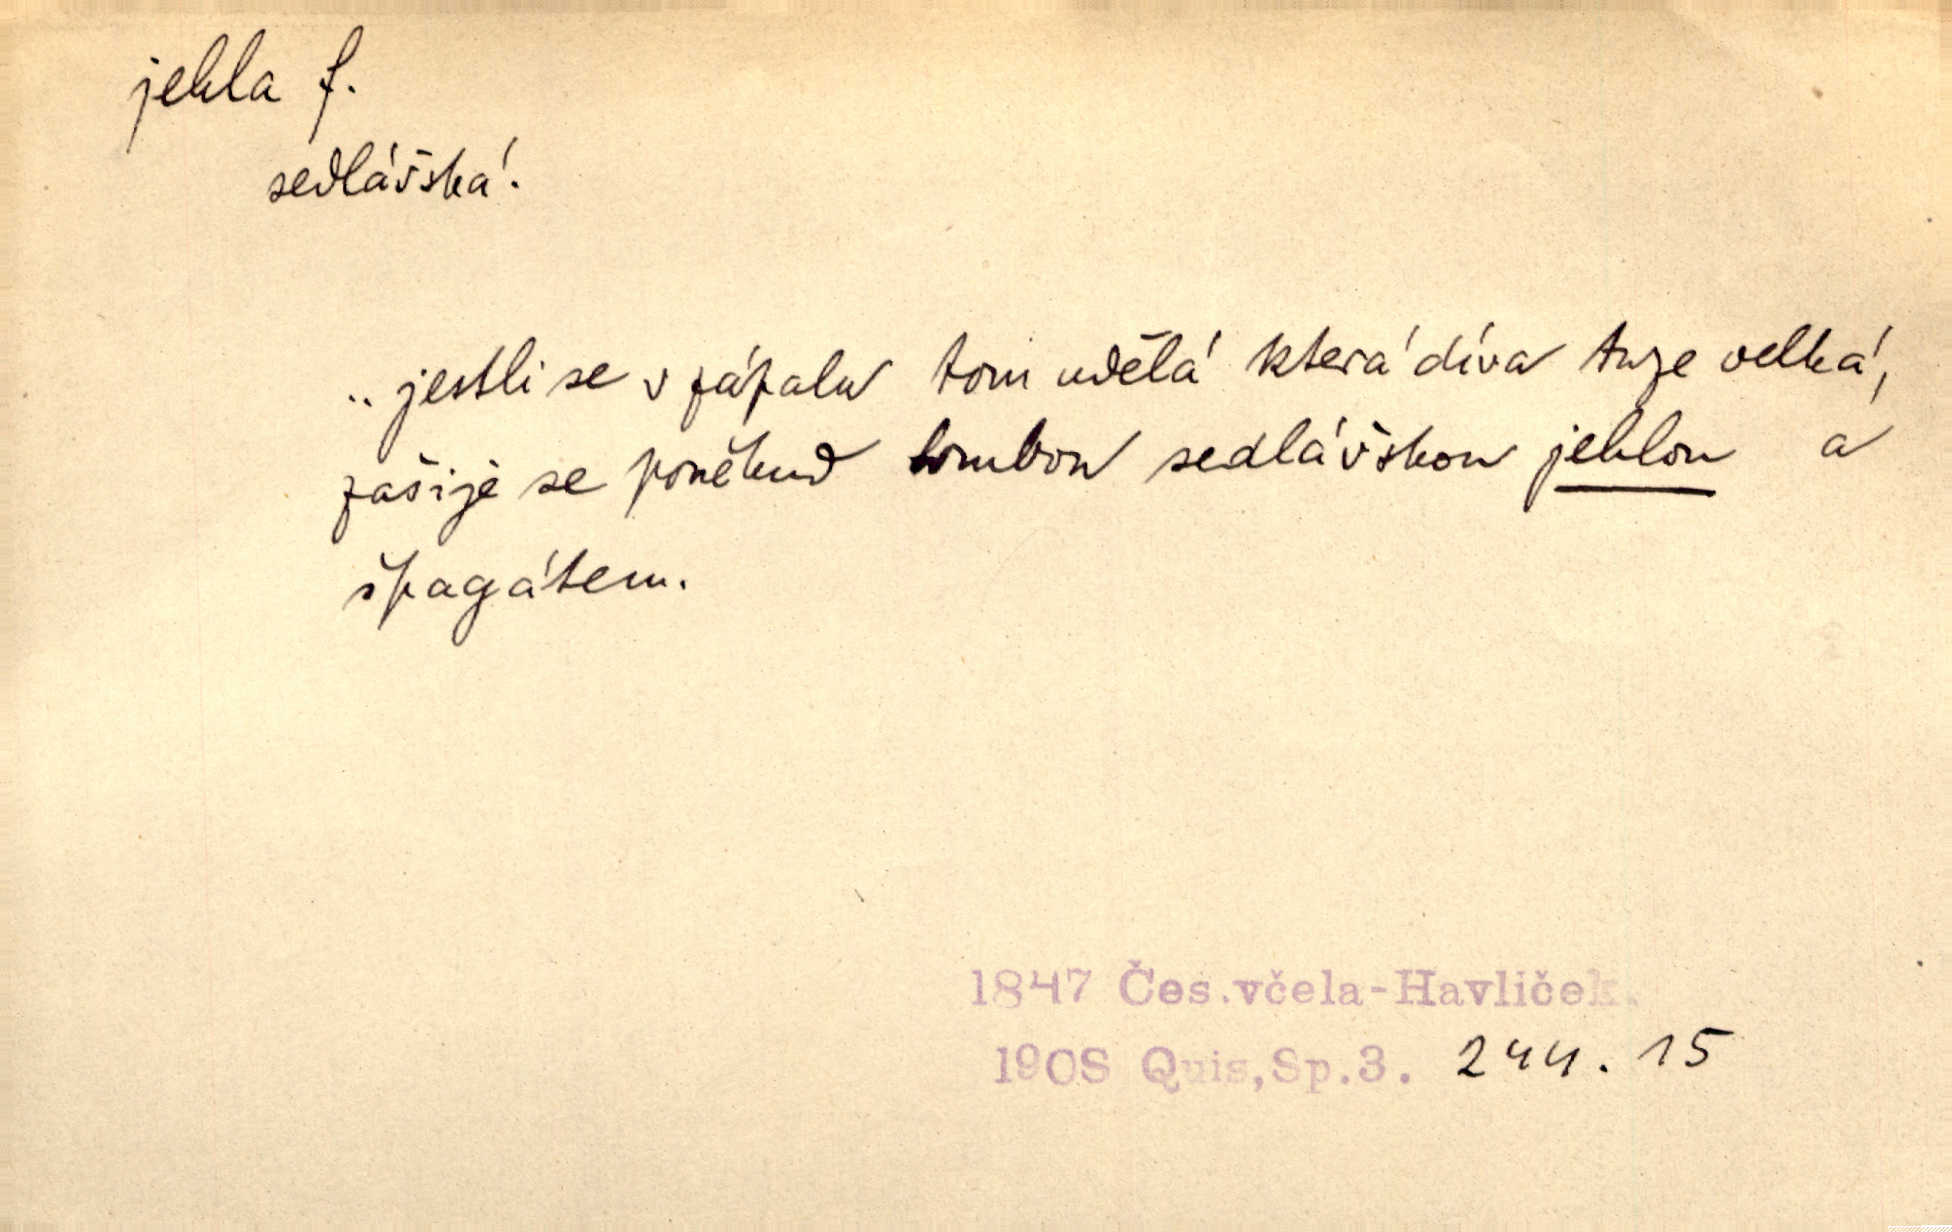 jehla f.
sedlářská.
.. jestli se v zápalu tom udělá která díra tuze velká,
zašije se poněkud sedlářskou jehlou a
špagátem.
1847 Čes.včela-Havlíček.
1908 Quis,Sp.3. 244. 15